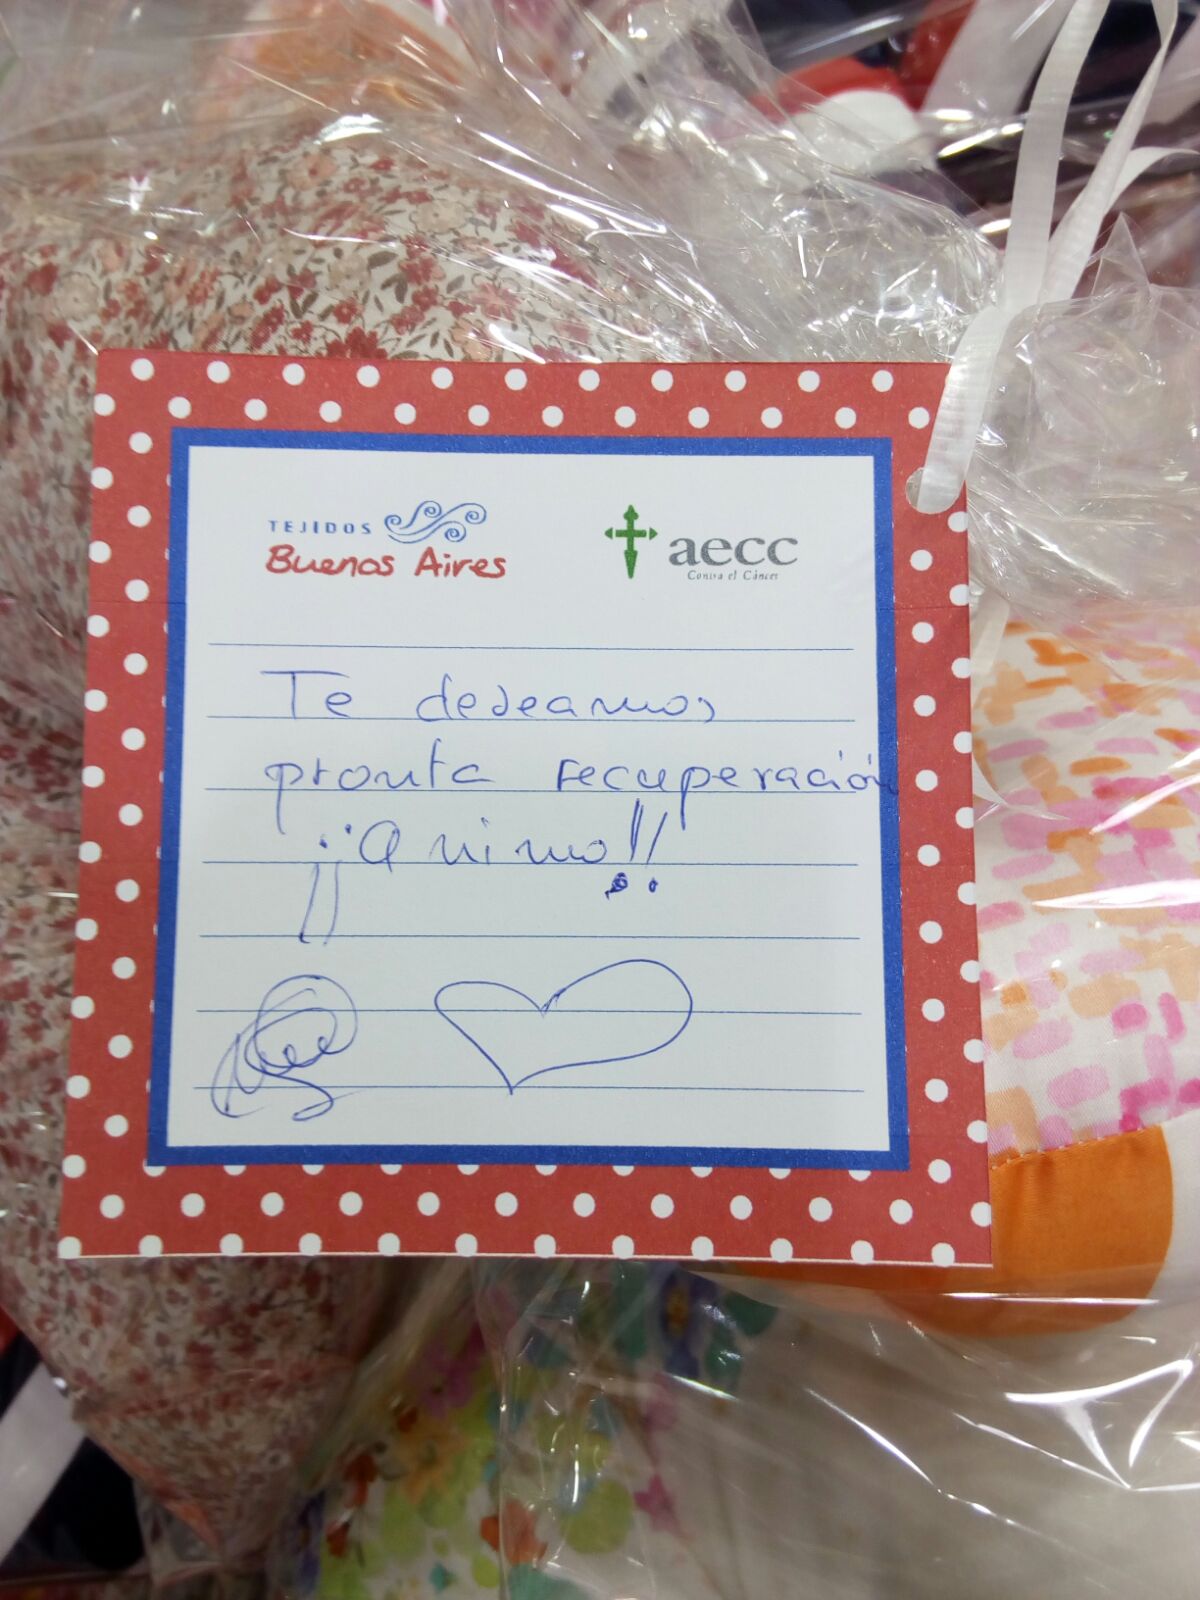 TEJIDOS
Buenos Aires
aecc
Contra el Cáncer
Te deseamos
pronta recuperación
¡¡Animo!!